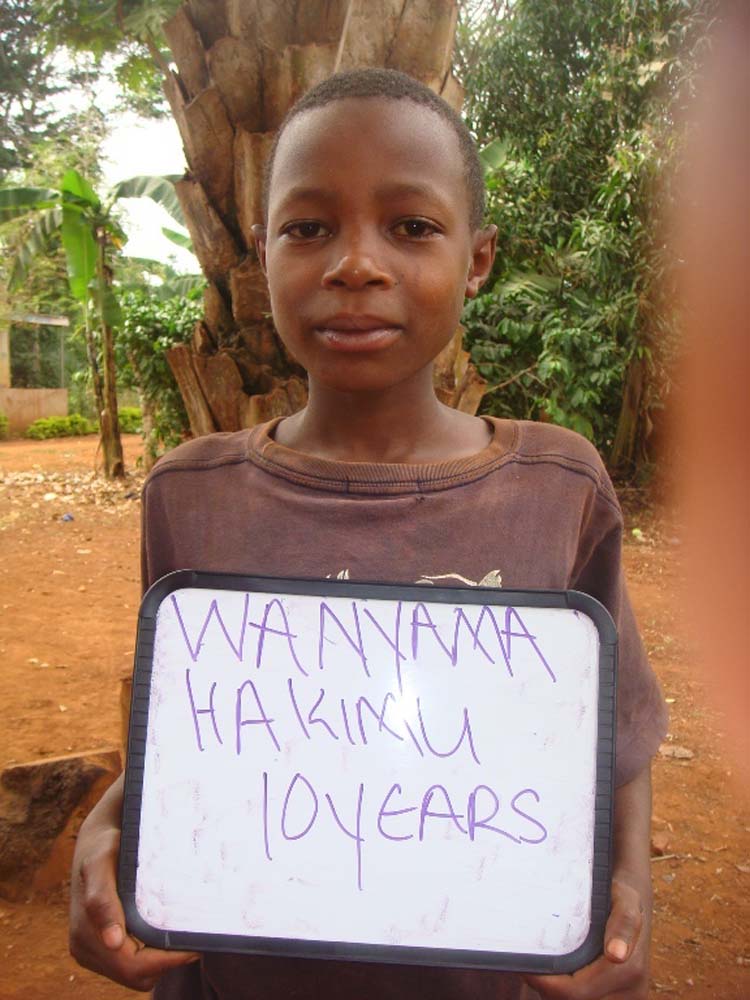 WANYAMA
HAKIMU
10 YEARS